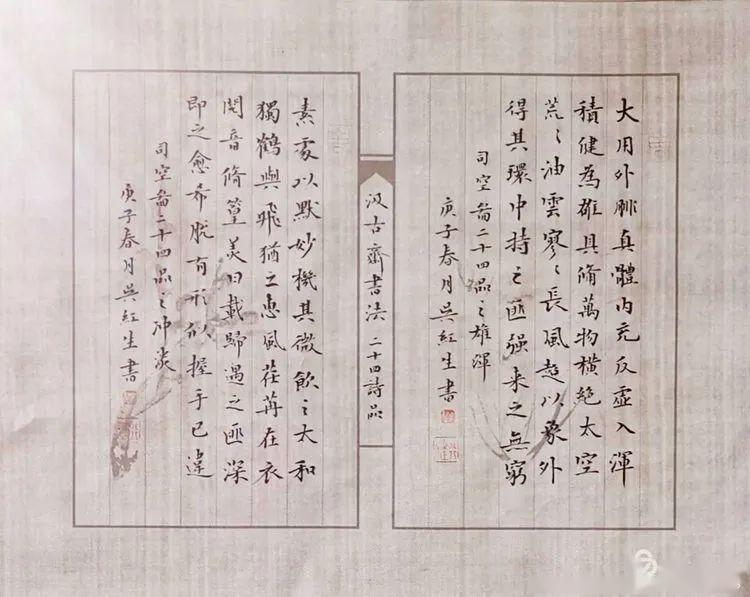 大用外腓真體內充反虛入渾
積健為雄具備萬物橫絕太空
荒〻油雲寥〻長風超以象外
得其環中持之匪強来之無窮
司空啚二十四品之雄渾
庚子春月吳紅生書
汲古齋書法 二十四詩品
素處以默妙機其微飲之太和
獨鶴與飛猶之惠風荏苒在衣
閱音脩篁美曰載歸遇之匪深
即之愈希脫有形似握手已違
司空啚二十四品之沖淡
庚子春月吳紅生書